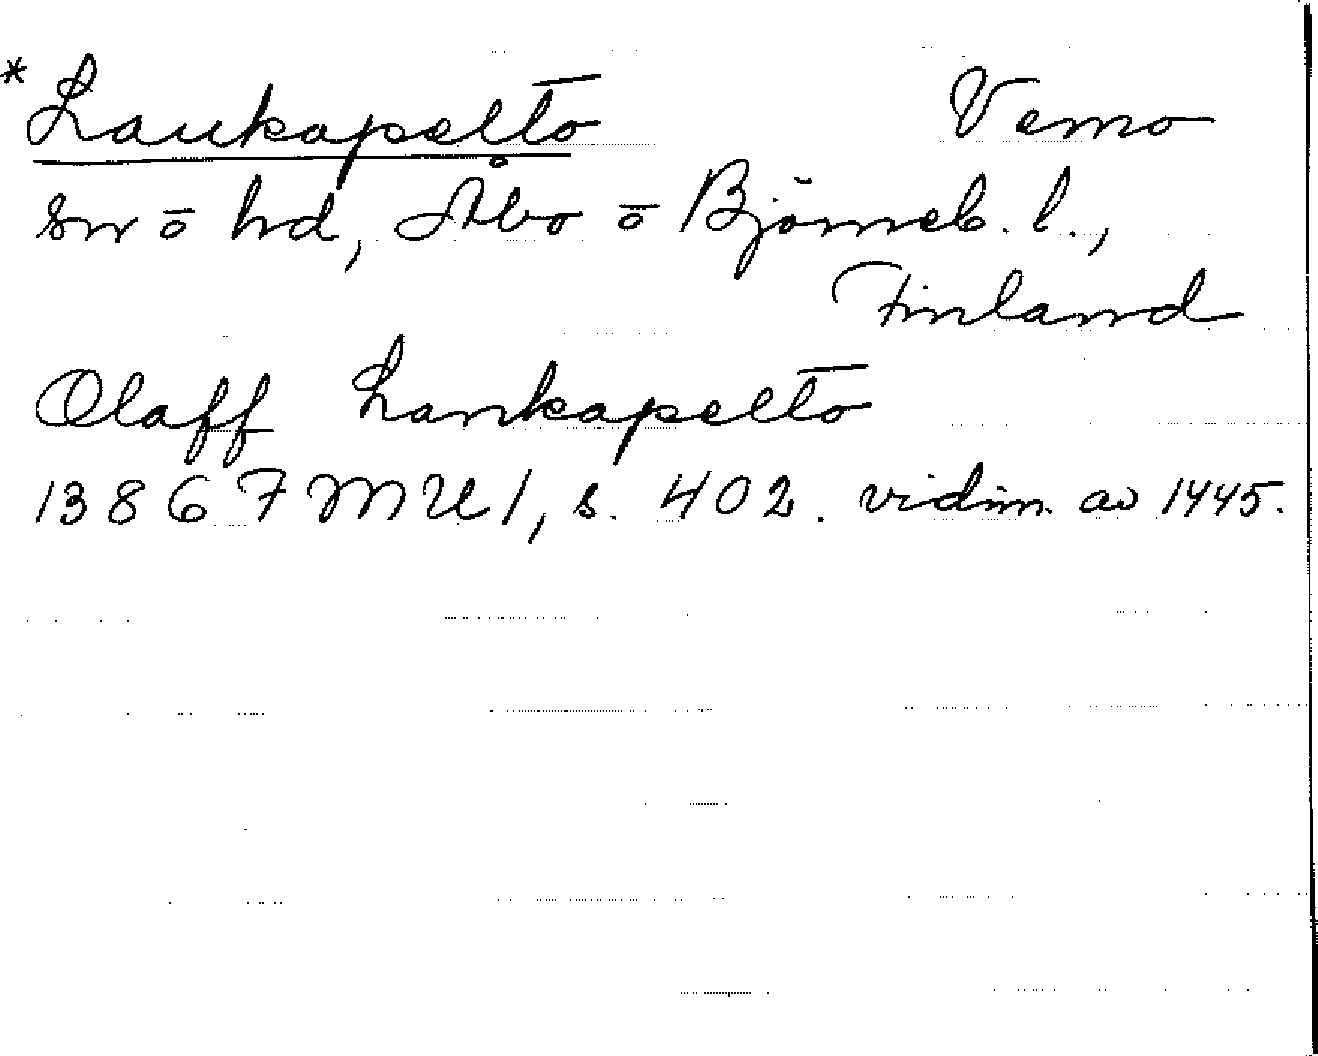 *Laukapelto Vemo
sn ō hd, Åbo ō Björneb. l.,
Finland
Olaff Lankapelto
1386 FMU 1, s. 402. vidim. av 1445.